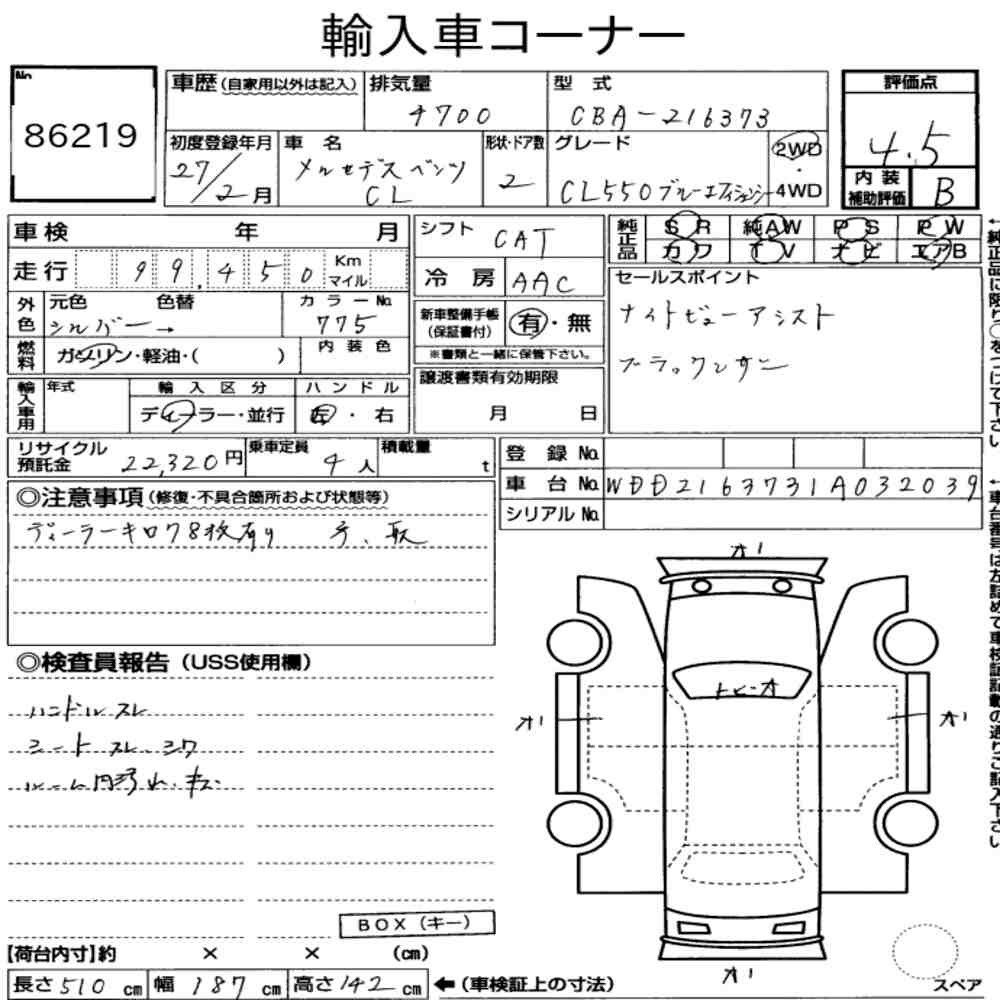 輸入車コーナー
No.
86219
車歴(自家用以外は記入)
排気量
4700
型式
CBA-216373
評価点
4.5
初度登録年月
27/2月
車名
メルセデスベンツ
CL
形状・ドア数
2
グレード
CL550ブルーエフィシェンシー
2WD
・
4WD
内装
補助評価
B
車検 年 月
走行 99,450 Km
マイル
シフト CAT
冷房 AAC
純正品
SR 純AW PS PW
カワ TV ナビ エアB
外色
元色 色替
シルバー→
カラーNo.
775
新車整備手帳
(保証書付)
有・無
※書類と一緒に保管下さい。
セールスポイント
ナイトビューアシスト
ブラックレザー
燃料
ガソリン・軽油・( )
内装色
輸入車用
年式
輸入区分
ディーラー・並行
ハンドル
左・右
譲渡書類有効期限
月 日
リサイクル
預託金 22,320円
乗車定員
4人
積載量
t
登録No.
車台No. WDD2163731A032039
シリアルNo.
◎注意事項(修復・不具合箇所および状態等)
◎検査員報告(USS使用欄)
ハンドルスレ
シートスレ・シワ
ルーム内汚れ・キズ
オ1
トビ・オ
オ1
オ1
オ1
BOX(キー)
【荷台内寸】約 × × (cm)
長さ510cm 幅187cm 高さ142cm
←(車検証上の寸法)
スペア
←純正品に限り○をつけて下さい
←車台番号は左詰めで車検証記載の通りご記入下さい